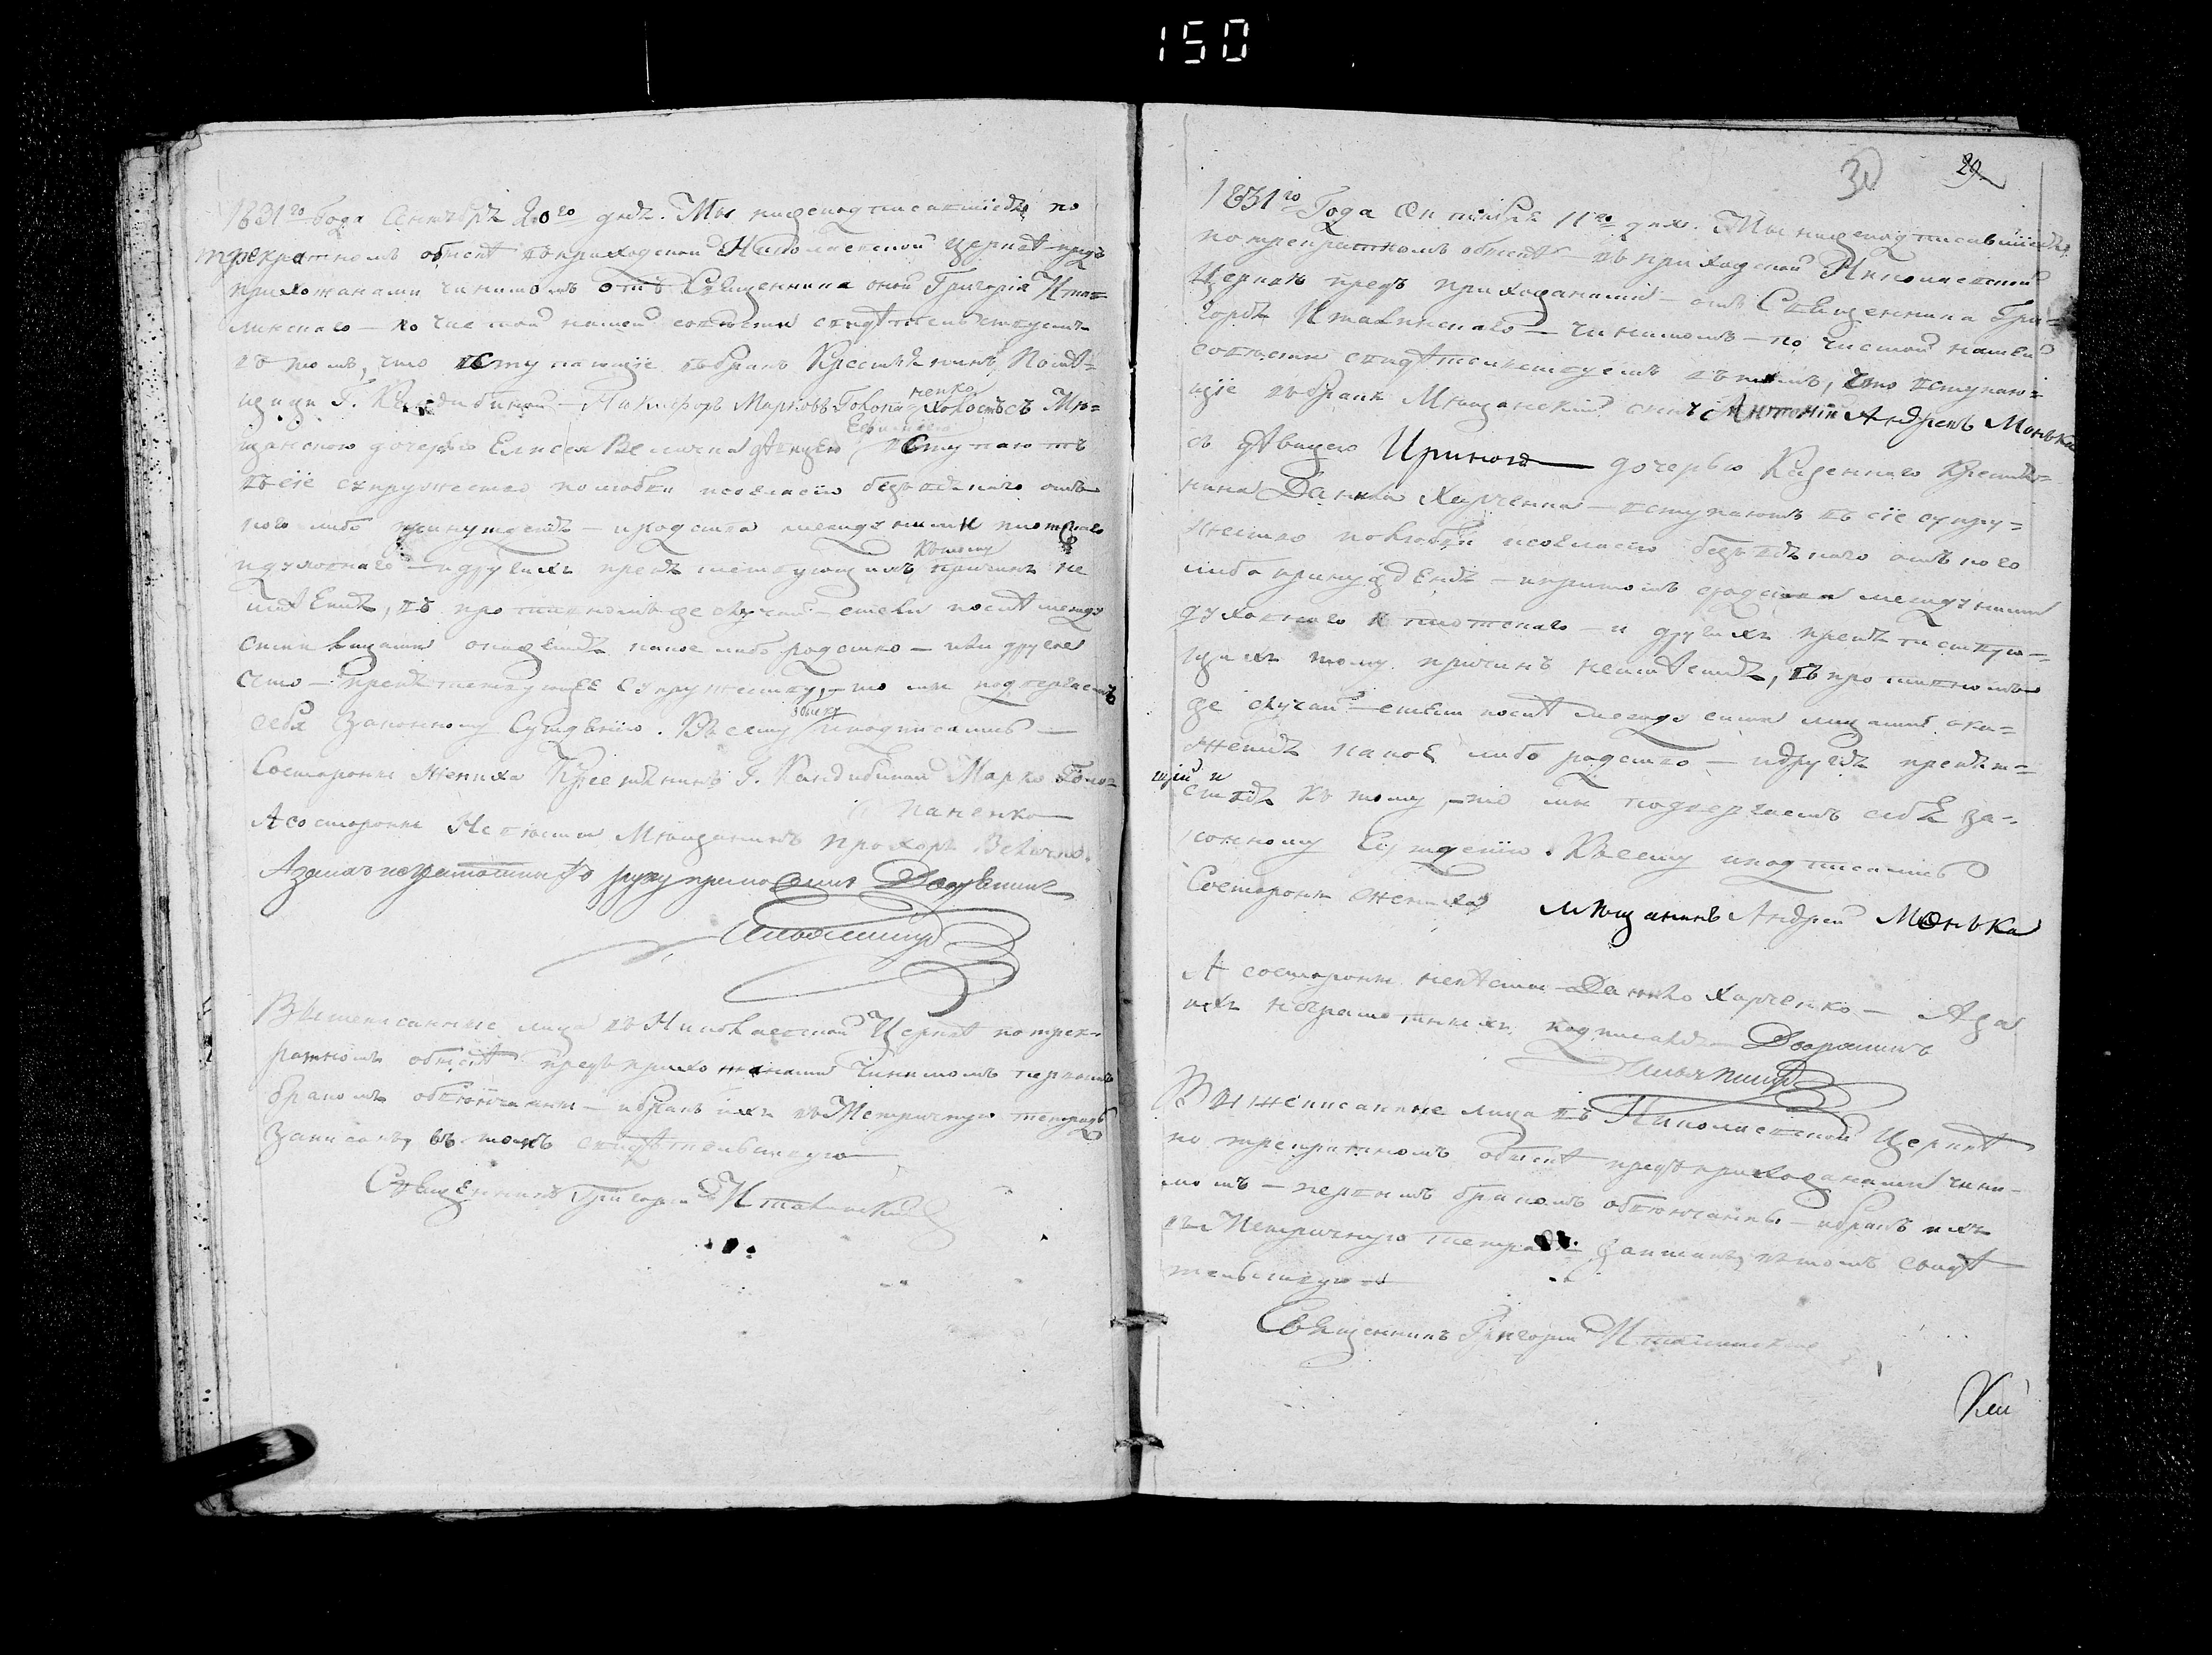 150
1831го Года Октября 20го дня. Мы нижеподписавшіеся по
трекратномъ обыскѣ въ приходской Николаевской церкѣ предъ
прихожанами чинимомъ отъ Священника оной Григорія Ита=
линскаго – по чистой нашей совѣсти свидѣтельствуемъ
въ томъ, что вступающіе въ бракъ Крестьянинъ Помѣ=
щицы Г. Кандибиной – Никифоръ Марковъ Голопа=
ненко
холостъ съ Мѣ=
щанскою дочерью Елисея Величка дѣвицею
вступаютъ
въ сіе супружество по любви и согласію безъ всякаго отъ
кого либо принужденія – и родства между ними плотскаго
и духовнаго – и другихъ препятствующихъ
къ тому
причинъ не
имѣемъ, въ противномъ же случаѣ – естьли послѣ между
сими лицами окажется какое либо родство – или другое
что – препятствующее супружеству, – то мы подвергаемъ
себя законному Сужденію. Въ сему
обыску
и подписались –
Состороны жениха Крестьянинъ Г. Кандибиной Марко Голо=
паненко
А состороны Невѣсты Мѣщанинъ Прохоръ Величко.
А за ихъ неграмотныхъ руку приложилъ Дворянинъ
Вышеписанные лица въ Николаевской Церкѣ по трек=
ратномъ обыскѣ предъ прихожанами чинимомъ первымъ
бракомъ обвѣнчаны – и бракъ ихъ въ Метричную тетрадь
записанъ, въ томъ свидѣтельствую
Священникъ Григорій Италинскій
30
29
1831го Года Октября 11го дня. Мы нижеподписавшіеся
по трекратномъ обыскѣ – въ приходской Николаевской
Церкви предъ прихожанами – отъ Священника Гри=
горія Италинскаго – чинимомъ – по чистой нашей
совѣсти свидѣтельствуемъ въ томъ, что вступаю=
щіе въ бракъ Мѣщанскій сынъ Антоній Андреевъ Монька
съ дѣвицею Ириною дочерью Казеннаго Крестья=
нина Данила Харченка – вступаютъ въ сіе супру=
жество по любви и согласію безъ всякаго отъ кого
либо принужденія – и притомъ сродства между ними
духовнаго и плотскаго – и другихъ препятствую=
щихъ тому причинъ неимѣемъ, въ противномъ
же случаѣ – естьли послѣ между сими лицами ока=
жется какое либо родство – и другія препят=
ствія къ тому, – то мы подвергаемъ себя за=
конному Сужденію. Въ сему и подписались
Состороны жениха Мѣщанинъ Андрей Монька
А состороны невѣсты Данило Харченко – А за
ихъ неграмотныхъ подписался Дворянинъ
Вышеписанные лица въ Николаевской Церкѣ
по трекратномъ обыскѣ предъ прихожанами чини=
момъ – первымъ бракомъ обвѣнчаны – и бракъ ихъ
въ Метричную тетрадь записанъ, въ томъ свидѣ
тельствую
Священникъ Григорій Италинскій